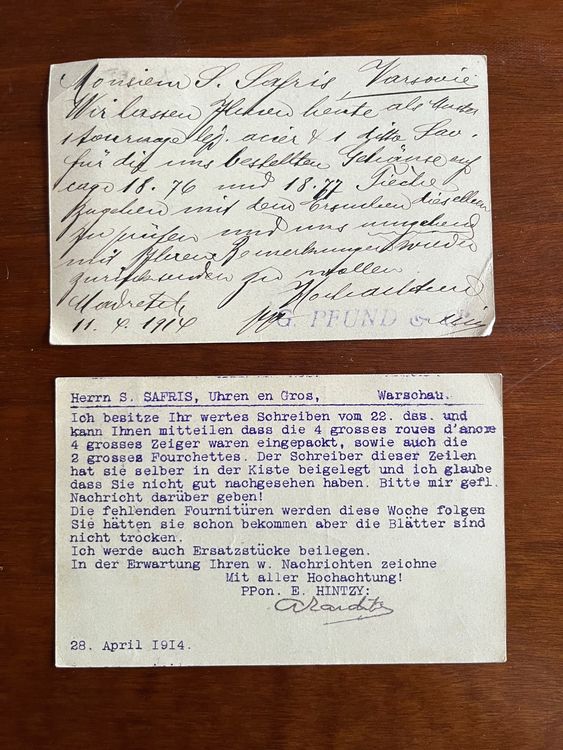 Monsieur S. Safris, Varsovie
Wir lassen Ihnen heute als Muster
1 tournage lép. acier & 1 ditto Sav.
für die uns bestellten
cage 18.76 und 18.77 Pièce
zugehen mit dem Ersuchen dieselben
zu prüfen und uns umgehend
mit Ihren Bemerkungen wieder
zurücksenden zu wollen
Hochachtend
Madretsch
11. 4. 1914 pp G. PFUND &
Herrn S. SAFRIS, Uhren en Gros, Warschau.
Ich besitze Ihr wertes Schreiben vom 22. dss. und
kann Ihnen mitteilen dass die 4 grosses roues d'ancre
4 grosses Zeiger waren eingepackt, sowie auch die
2 grosses Fourchettes. Der Schreiber dieser Zeilen
hat sie selber in der Kiste beigelegt und ich glaube
dass Sie nicht gut nachgesehen haben. Bitte mir gefl.
Nachricht darüber geben!
Die fehlenden Fournitüren werden diese Woche folgen
Sie hätten sie schon bekommen aber die Blätter sind
nicht trocken.
Ich werde auch Ersatzstücke beilegen.
In der Erwartung Ihren w. Nachrichten zeichne
Mit aller Hochachtung!
PPon. E. HINTZY:
28. April 1914.